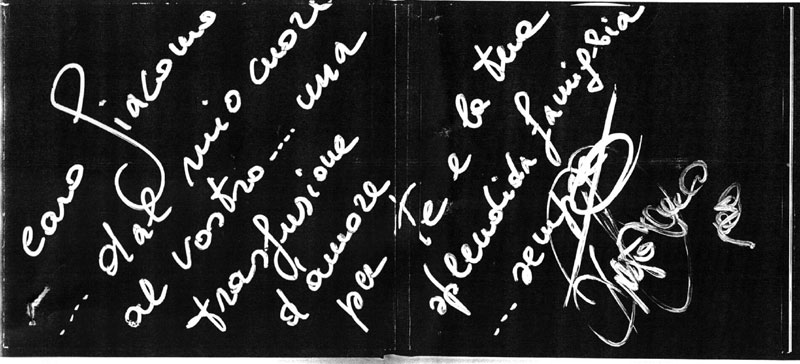 caro Giacomo
.... dal mio cuore
al vostro .... una
trasfusione
d'amore
per Te e la tua
splendida famiglia
... sempre